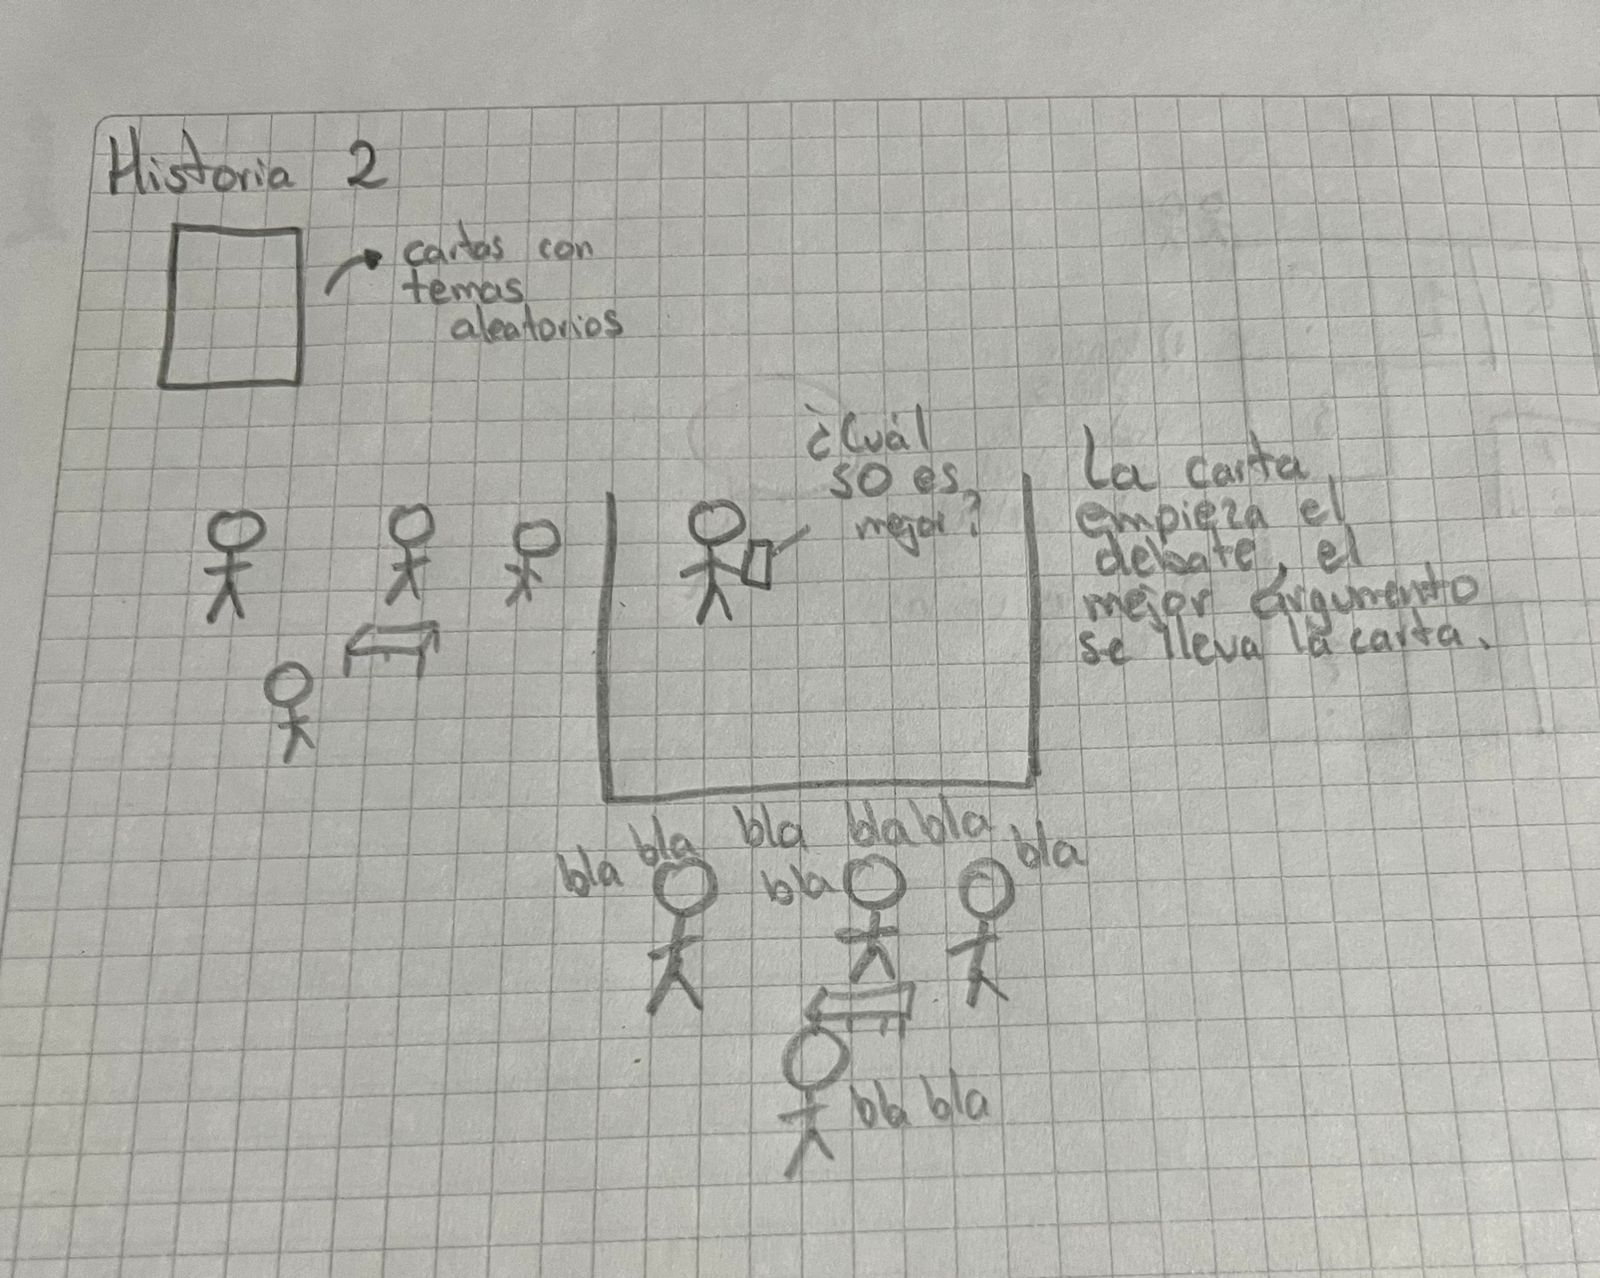 Historia 2
cartas con
temas
aleatorios
¿Cuál
SO es
mejor?
La carta
empieza el
debate, el
mejor argumento
se lleva la carta.
bla bla bla bla bla bla
bla bla
bla bla